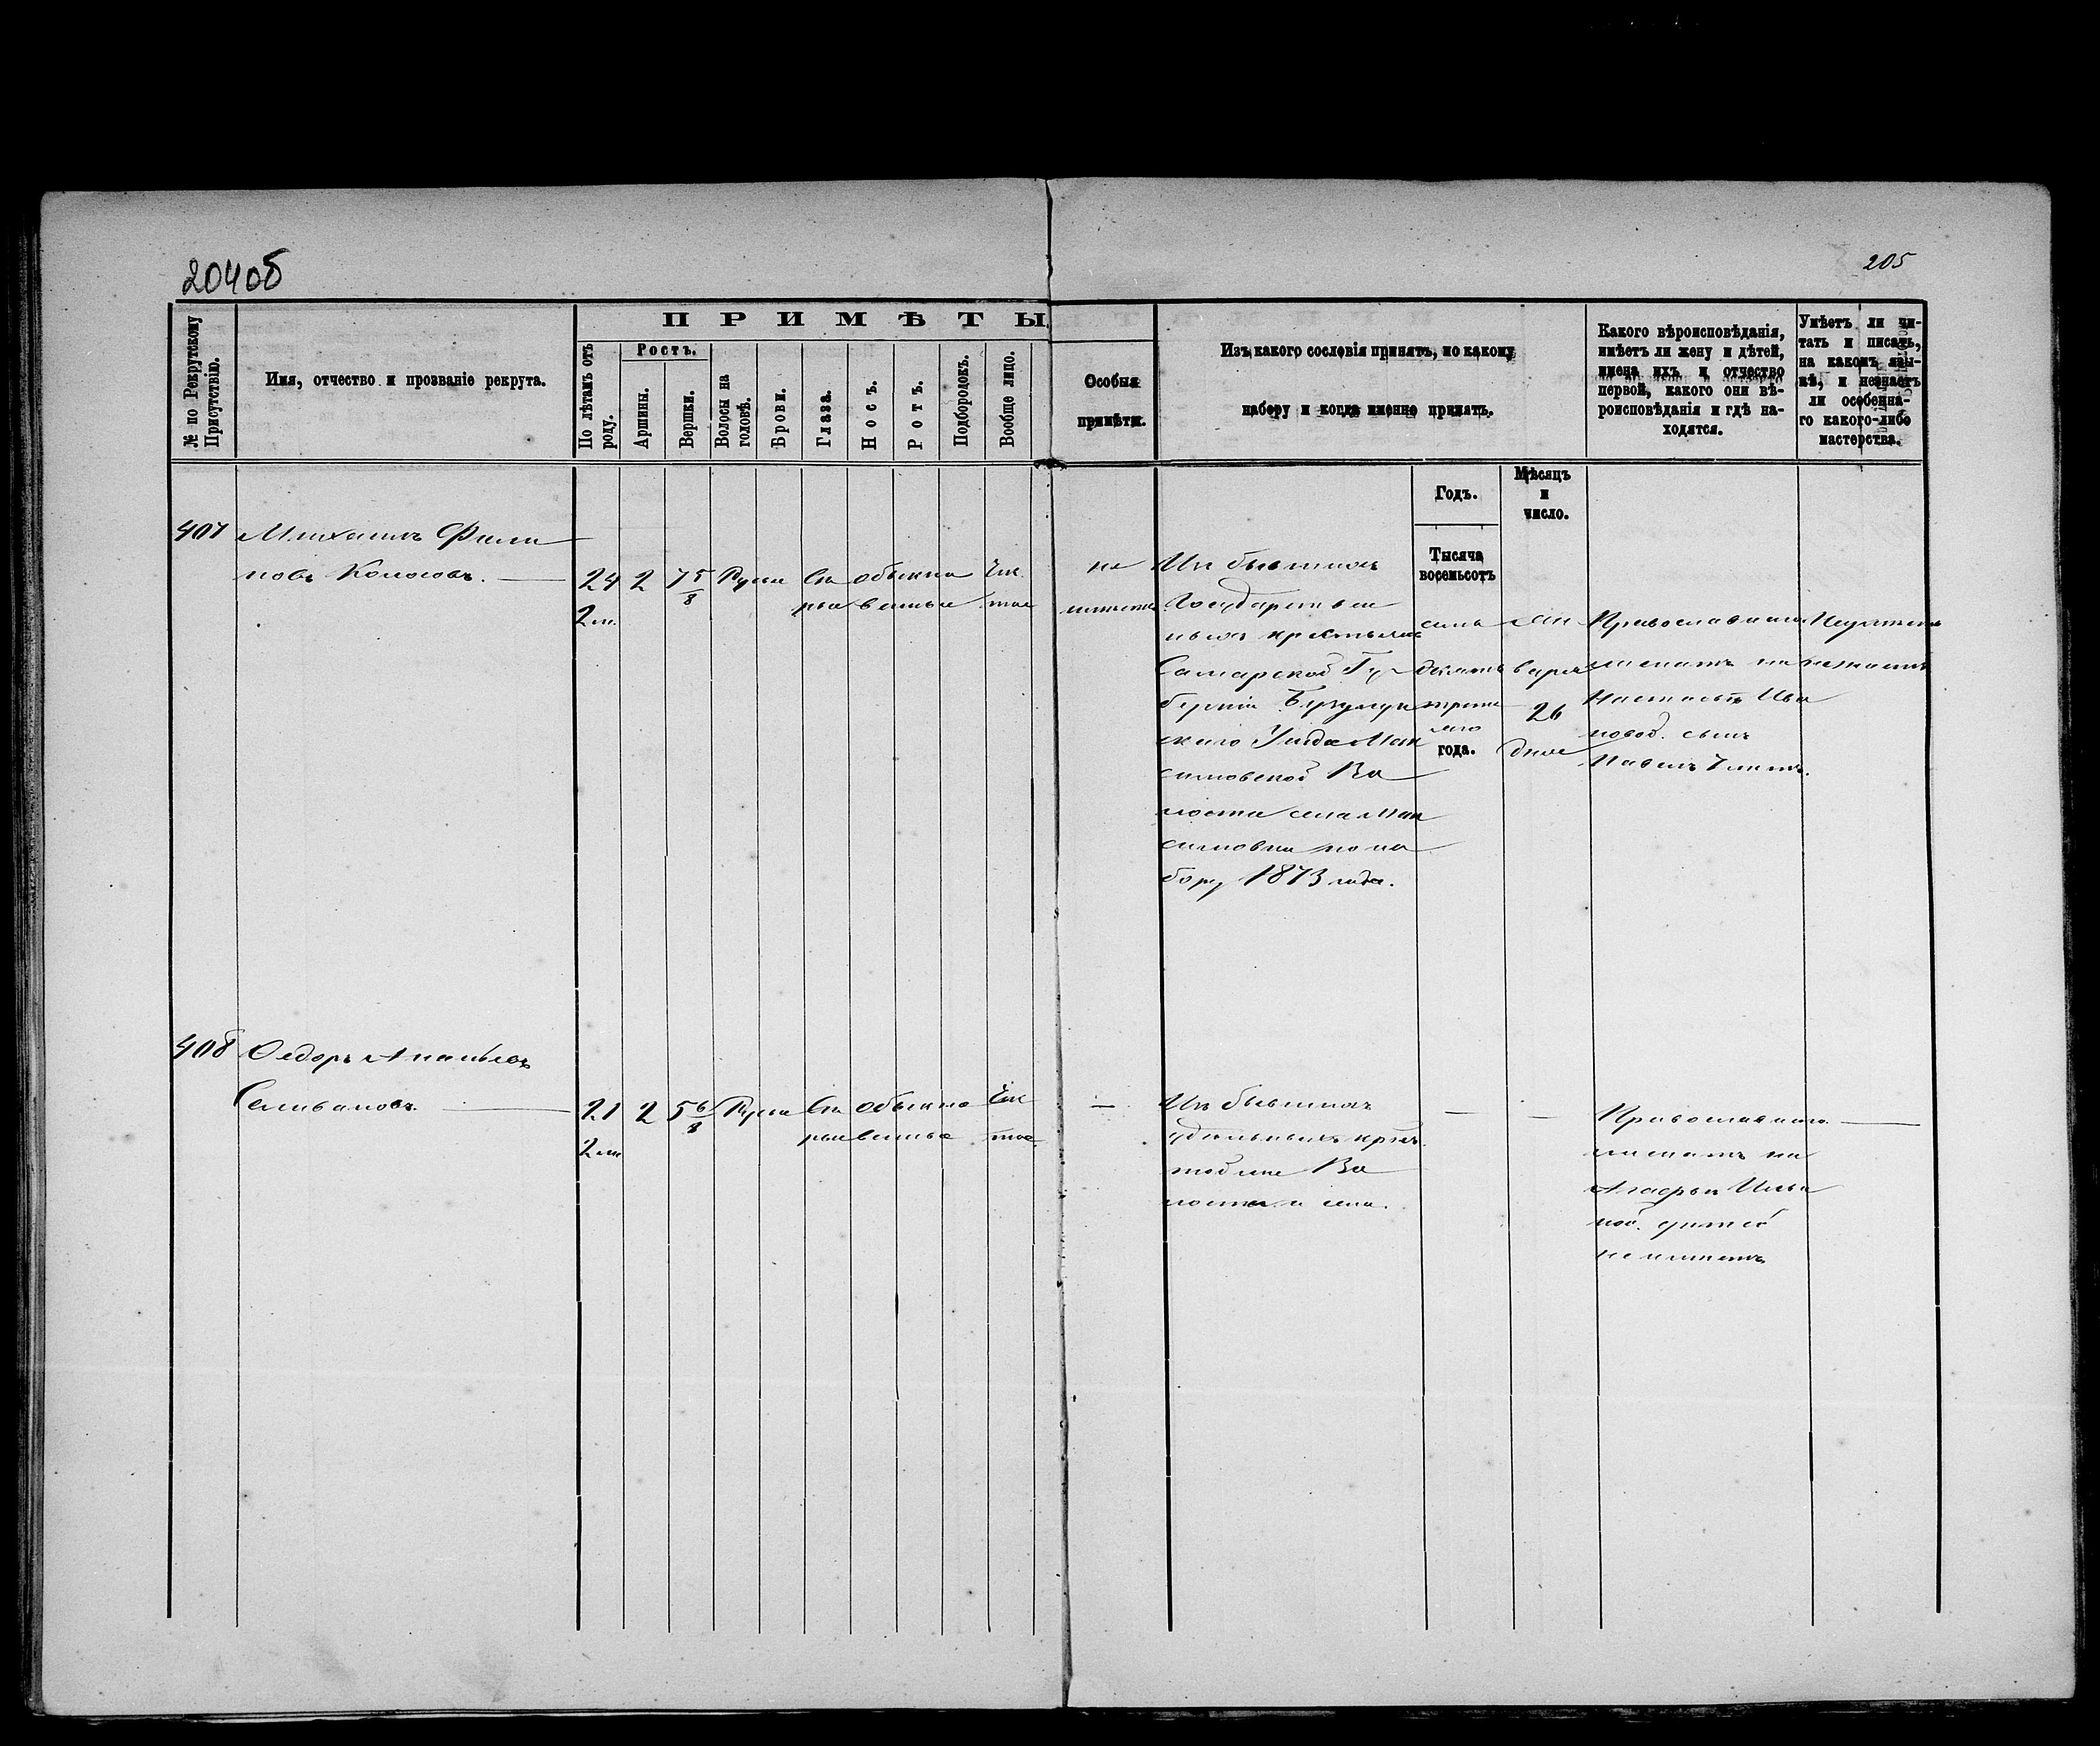 204об
205
№ по Рекрутскому Присутствію.
Имя, отчество и прозваніе рекрута.
ПРИМѢТЫ
По лѣтамъ отъ роду.
Ростъ.
Аршины.
Вершки.
Волосы на головѣ.
Брови.
Глаза.
Носъ.
Ротъ.
Подбородокъ.
Вообще лицо.
Особыя
примѣты.
Изъ какого сословія принятъ, по какому
набору и когда именно принятъ.
Какого вѣроисповѣданія,
имѣетъ ли жену и дѣтей,
имена ихъ и отчество
первой, какого они вѣ-
роисповѣданія и гдѣ на-
ходятся.
Умѣетъ ли чи-
тать и писать,
на какомъ язы-
кѣ, и незнаетъ
ли особенна-
го какого-либо
мастерства.
Годъ.
Мѣсяцъ
и
число.
Тысяча
восемьсотъ
года.
407
Михаилъ Фили
повъ Колосовъ.
24
2 м.
2
7 5/8
Русые
Сѣ
рые
обыкно
венные
Чис
тое
не
имѣетъ
Изъ бывшихъ
Государствен
ныхъ крестьянъ
Самарской Гу
берніи Бузулук
скаго Уѣзда Мак
симовской Во
лости села Мак
симовки по на
бору 1873 года.
семь
десятъ
треть
яго
Ян
варя
26
дня
Православнаго
женатъ на
Настасьѣ Ива
новой. сынъ
Павелъ 7 лѣтъ.
Неумѣетъ
незнаетъ
408
Ѳедоръ Ананьевъ
Селивановъ.
21
2 м
2
5 6/8
Русые
Сѣ
рые
обыкно
венные
Чис
тое
—
Изъ бывшихъ
удѣльныхъ крест.
той же Во
лости и села.
—
—
Православнаго.
женатъ на
Агафьи Ильи
ной. дѣтей
не имѣетъ
—